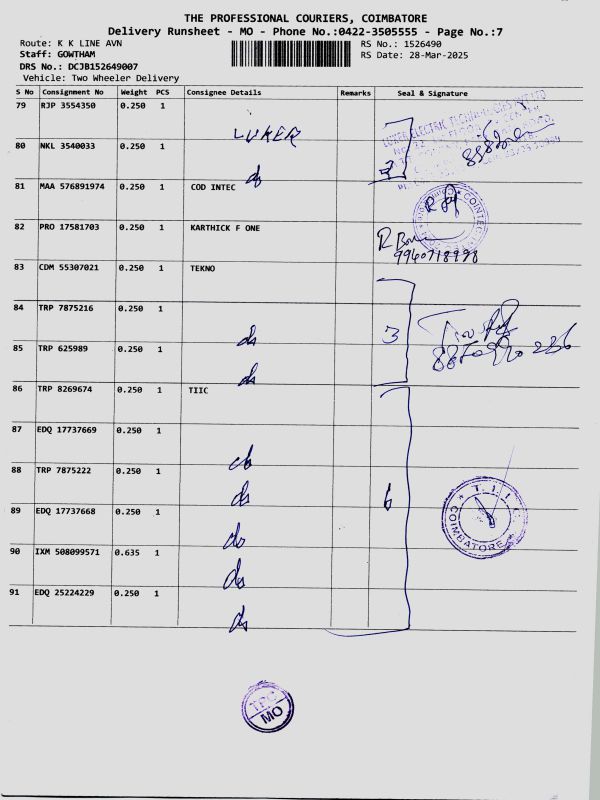 THE PROFESSIONAL COURIERS, COIMBATORE
Delivery Runsheet - MO - Phone No.:0422-3505555 - Page No.:7
Route: K K LINE AVN
RS No.: 1526490
Staff: GOWTHAM
RS Date: 28-Mar-2025
DRS No.: DCJB152649007
Vehicle: Two Wheeler Delivery
S No Consignment No Weight PCS Consignee Details Remarks Seal & Signature
79 RJP 3554350 0.250 1
LUKER
80 NKL 3540033 0.250 1
ds
2
81 MAA 576891974 0.250 1 COD INTEC
82 PRO 17581703 0.250 1 KARTHICK F ONE
9940718998
83 CDM 55307021 0.250 1 TEKNO
84 TRP 7875216 0.250 1
ds
3
85 TRP 625989 0.250 1
ds
86 TRP 8269674 0.250 1 TIIC
87 EDQ 17737669 0.250 1
ds
88 TRP 7875222 0.250 1
ds
6
T.I.I.C.
COIMBATORE
89 EDQ 17737668 0.250 1
ds
90 IXM 508099571 0.635 1
ds
91 EDQ 25224229 0.250 1
ds
TPC
MO